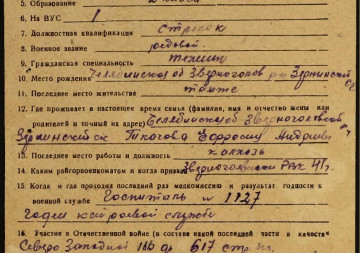 5. Образование
6. На ВУС 1
7. Должностная квалификация Стрелок
8. Военное звание рядовой
9. Гражданская специальность
10. Место рождения Челябинская об Зверноголов
11. Последнее место жительства тоже
12. Где проживает в настоящее время семья (фамилия, имя и отчество жены или
родителей и точный адрес) Челябинская об Зверноголовской
Ткачова Ефросия Андреев
13. Последнее место работы и должность колхоз
14. Каким райгорвоенкоматом и когда призван Зверноголовским РВК 41г.
15. Когда и где проходил последний раз медкомиссию и результат годности к
военной службе Госпиталь № 1827
годен к строевой службе
16. Участие в Отечественной войне (в составе какой последней части и качестве
Северо Западной 166 др 617 стр.